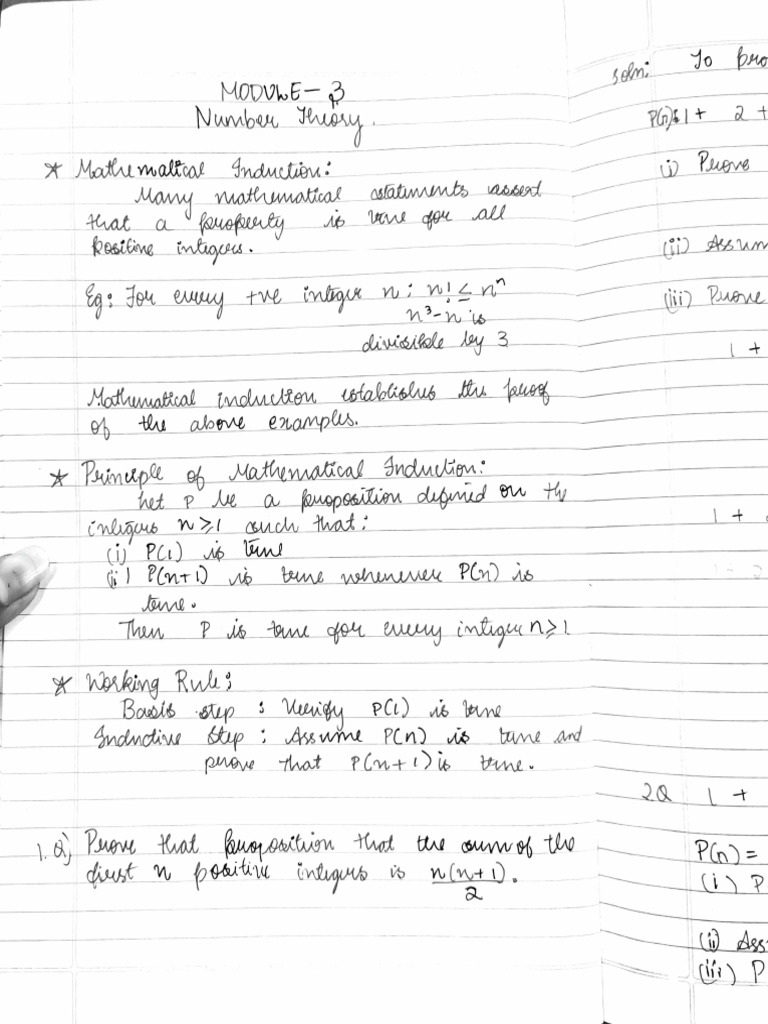 MODULE - 3
Number Theory.
* Mathematical Induction:
Many mathematical statements assert
that a property is true for all
positive integers.
Eg: For every +ve integer n: n! ≤ nⁿ
n³-n is
divisible by 3
Mathematical induction establishes the proof
of the above examples.
* Principle of Mathematical Induction:
Let P be a proposition defined on the
integers n≥1 such that:
(i) P(1) is true
(ii) P(n+1) is true whenever P(n) is
true.
Then P is true for every integer n≥1
* Working Rule:
Basis step : Verify P(1) is true
Inductive Step : Assume P(n) is true and
prove that P(n+1) is true.
1. Q) Prove that proposition that the sum of the
first n positive integers is n(n+1)/2.
Soln: To pro
P(n): 1 + 2 +
(i) Prove
(ii) Assum
(iii) Prove
1 +
1 +
2Q 1 +
P(n) =
(i) P
(ii) Ass
(iii) P